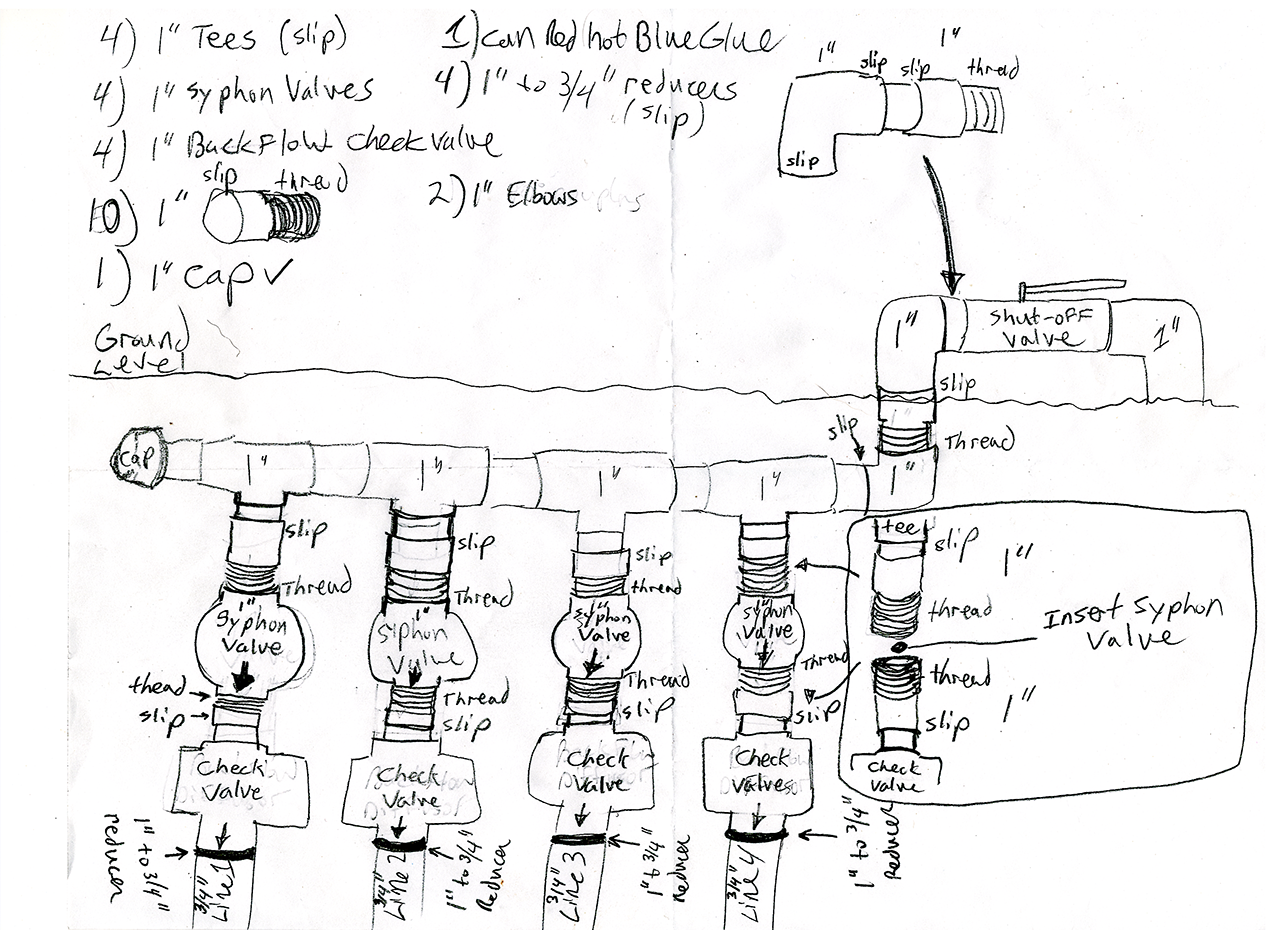 4) 1" Tees (slip)
4) 1" Syphon Valves
4) 1" BackFlow check valve
slip thread
10) 1"
1) 1" cap ✓
1) can Red hot Blue Glue
4) 1" to 3/4" reducers
(slip)
2) 1" Elbows
1" slip slip 1" thread
slip
Ground
Level
1" Shut-off
Valve 1"
slip
1"
Thread
slip
cap 1" 1" 1" 1" 1"
slip
Thread
1"
Syphon
Valve
thead
slip
Check
Valve
1" to 3/4"
reducer
3/4"
Line 1
slip
Thread
1"
Syphon
Valve
Thread
slip
Check
Valve
1" to 3/4"
Reducer
3/4"
Line 2
slip
thread
1"
Syphon
Valve
Thread
slip
Check
Valve
1" to 3/4"
Reducer
3/4"
Line 3
1"
Syphon
Valve
Thread
slip
Check
Valves
1" to 3/4"
Reducer
3/4"
Line 4
tee
slip
1"
thread
Insert Syphon
Valve
thread
1"
slip
Check
valve